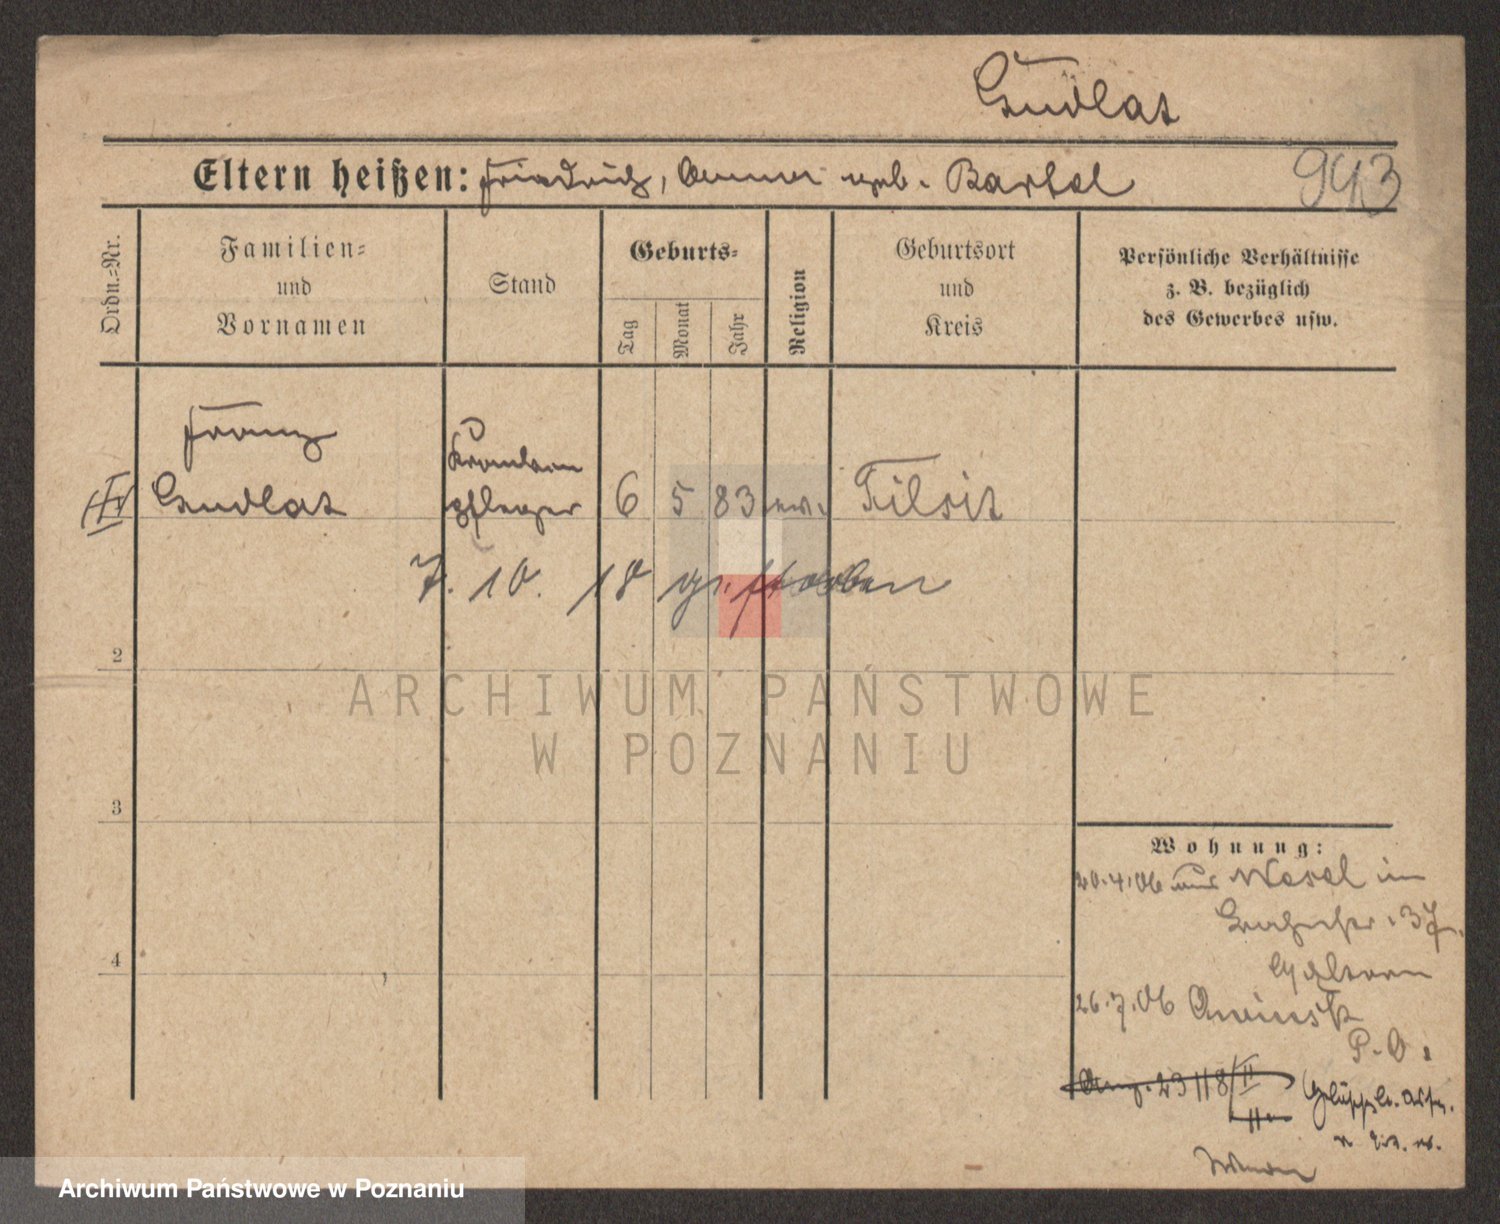 Gudlat
Eltern heißen: Friedrich, Anna geb. Bartel
943
Ordn.=Nr.
Familien=
und
Vornamen
Stand
Geburts=
Tag
Monat
Jahr
Religion
Geburtsort
und
Kreis
Persönliche Verhältnisse
z. B. bezüglich
des Gewerbes usw.
Franz
Gudlat
Kranken
pfleger
6 5 83 ev. Tilsit
7. 10. 18 gestorben
2
3
4
ARCHIWUM PAŃSTWOWE
W POZNANIU
Wohnung:
20.4.06 aus Wesel in
37.
Eltern
26.7.06
P.O.
23118/II
Archiwum Państwowe w Poznaniu